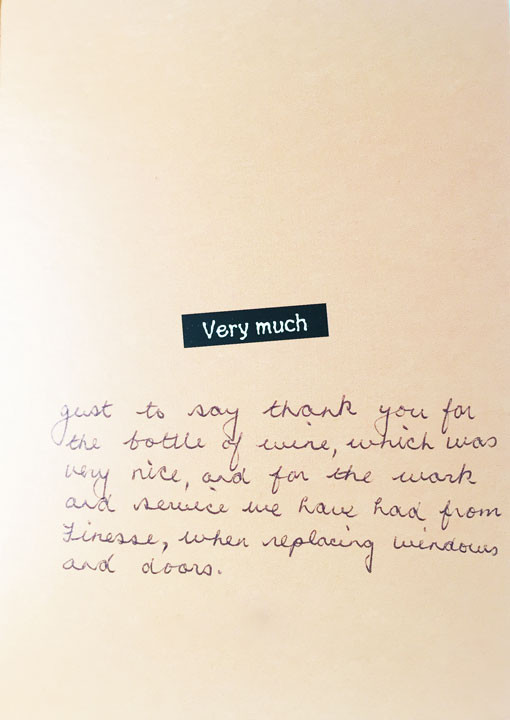 Very much
Just to say thank you for
the bottle of wine, which was
very nice, and for the work
and service we have had from
Finesse, when replacing windows
and doors.